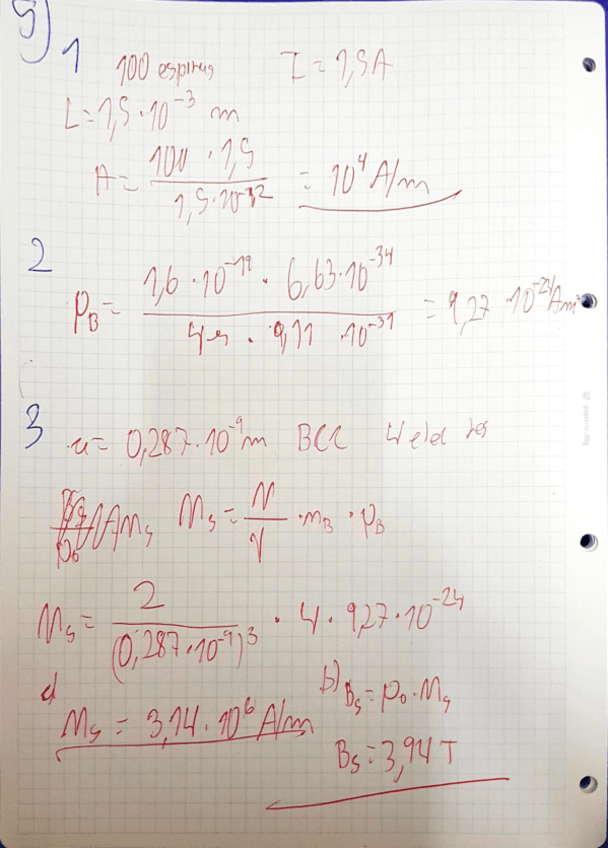 5)
1 100 espiras I = 1,5A
L = 1,5·10⁻³ m
A = (100 · 1,5) / (1,5·10⁻³) = 10⁴ A/m
2
p_B = (1,6·10⁻¹⁹ · 6,63·10⁻³⁴) / (4π · 9,11 · 10⁻³¹) = 9,27·10⁻²⁴ Am²
3 a = 0,287·10⁻⁹ m BCC 4
M_s = N/V · m_B · p_B
M_s = 2 / (0,287·10⁻⁹)³ · 4 · 9,27·10⁻²⁴
a) b) B_s = p₀ · M_s
M_s = 3,14·10⁶ A/m
B_s = 3,94 T